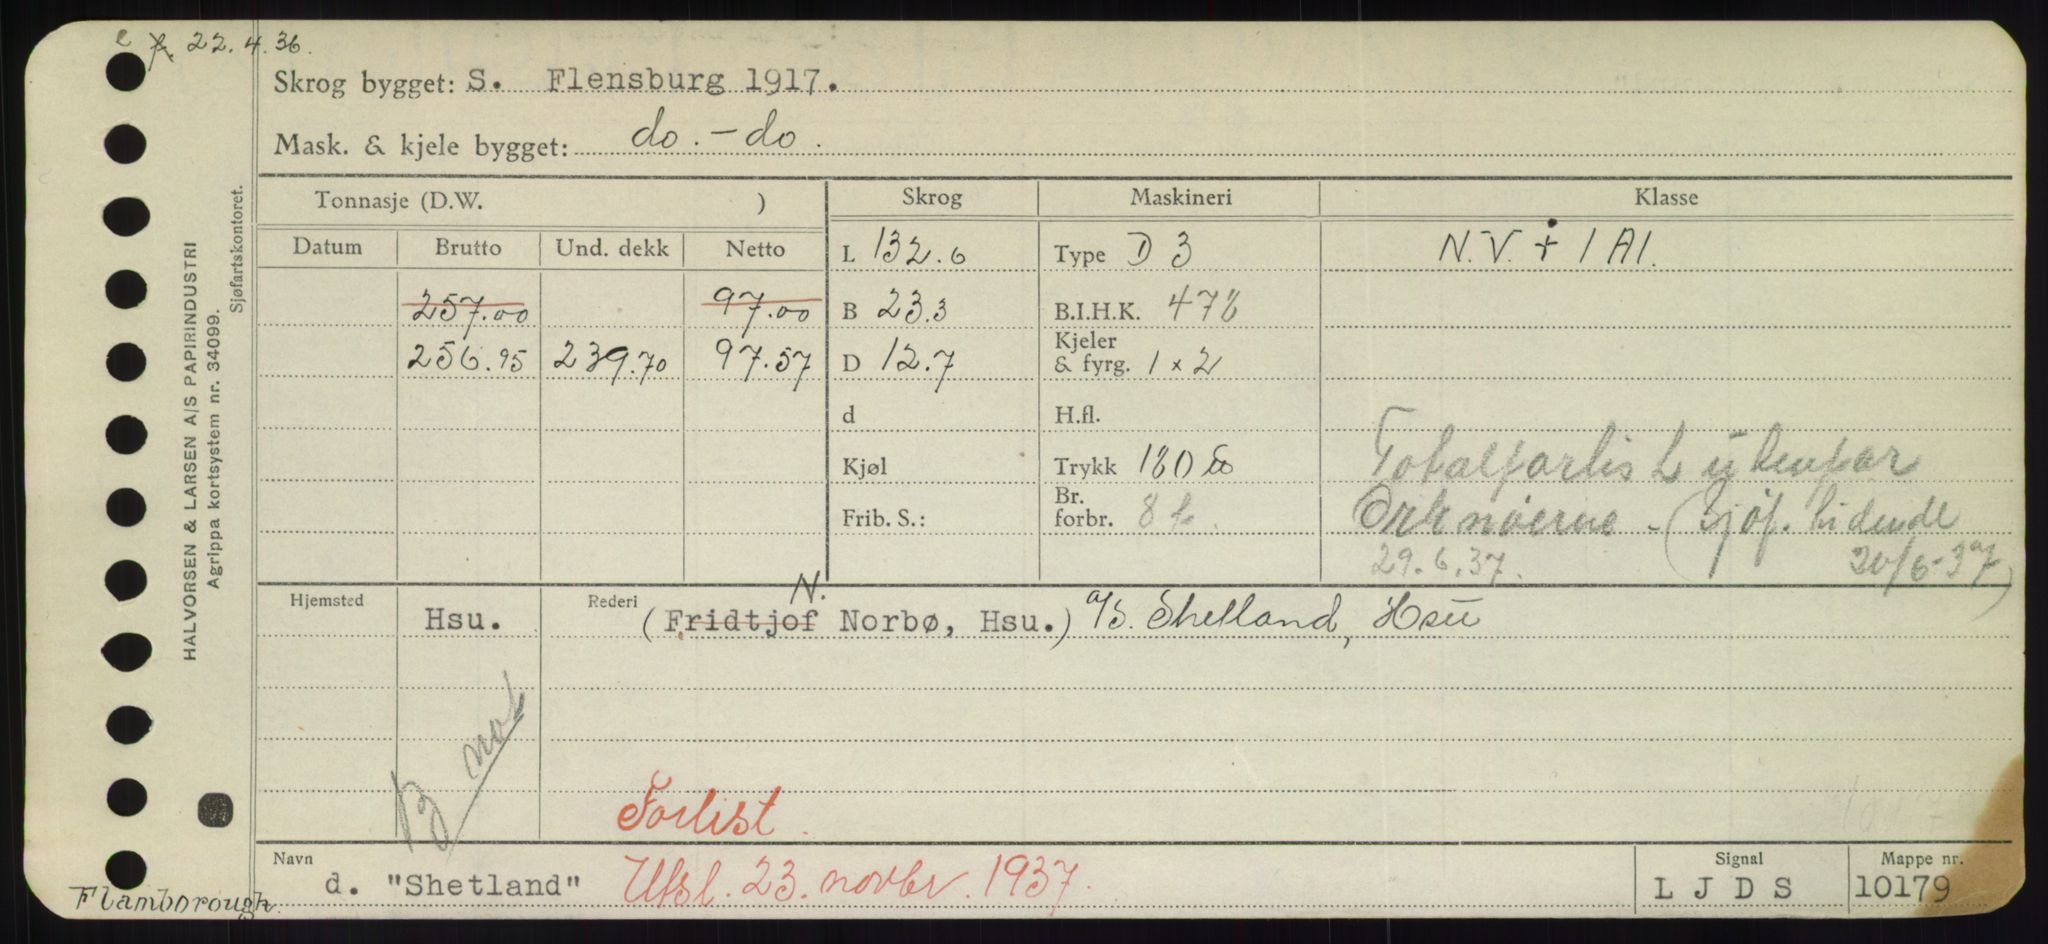 22.4.36.
Skrog bygget: S. Flensburg 1917.
Mask. & kjele bygget: do. - do.
Tonnasje (D.W. )
Skrog
Maskineri
Klasse
Datum Brutto Und. dekk Netto
L 132.6
Type D 3
N.V. + 1 A1.
257.00 97.00
B 23.3
B.I.H.K. 478
256.95 239.70 97.57
D 12.7
Kjeler
& fyrg. 1 x 2
d
H.fl.
Kjøl
Trykk 180 lb
Totalforlist utenfor
Frib. S.:
Br.
forbr. 8 t.
Orknøerne - (Sjöf. tidende
29.6.37. 30/6-37)
Hjemsted Hsu.
Rederi (Fridtjof N. Norbø, Hsu.) a/s. Shetland, Hsu
B not
Forlist.
Navn d. "Shetland" Utsl. 23. novbr. 1937.
Signal LJDS
Mappe nr. 10179
Flamborough.
HALVORSEN & LARSEN A/S PAPIRINDUSTRI
Agrippa kortsystem nr. 34099.
Sjøfartskontoret.